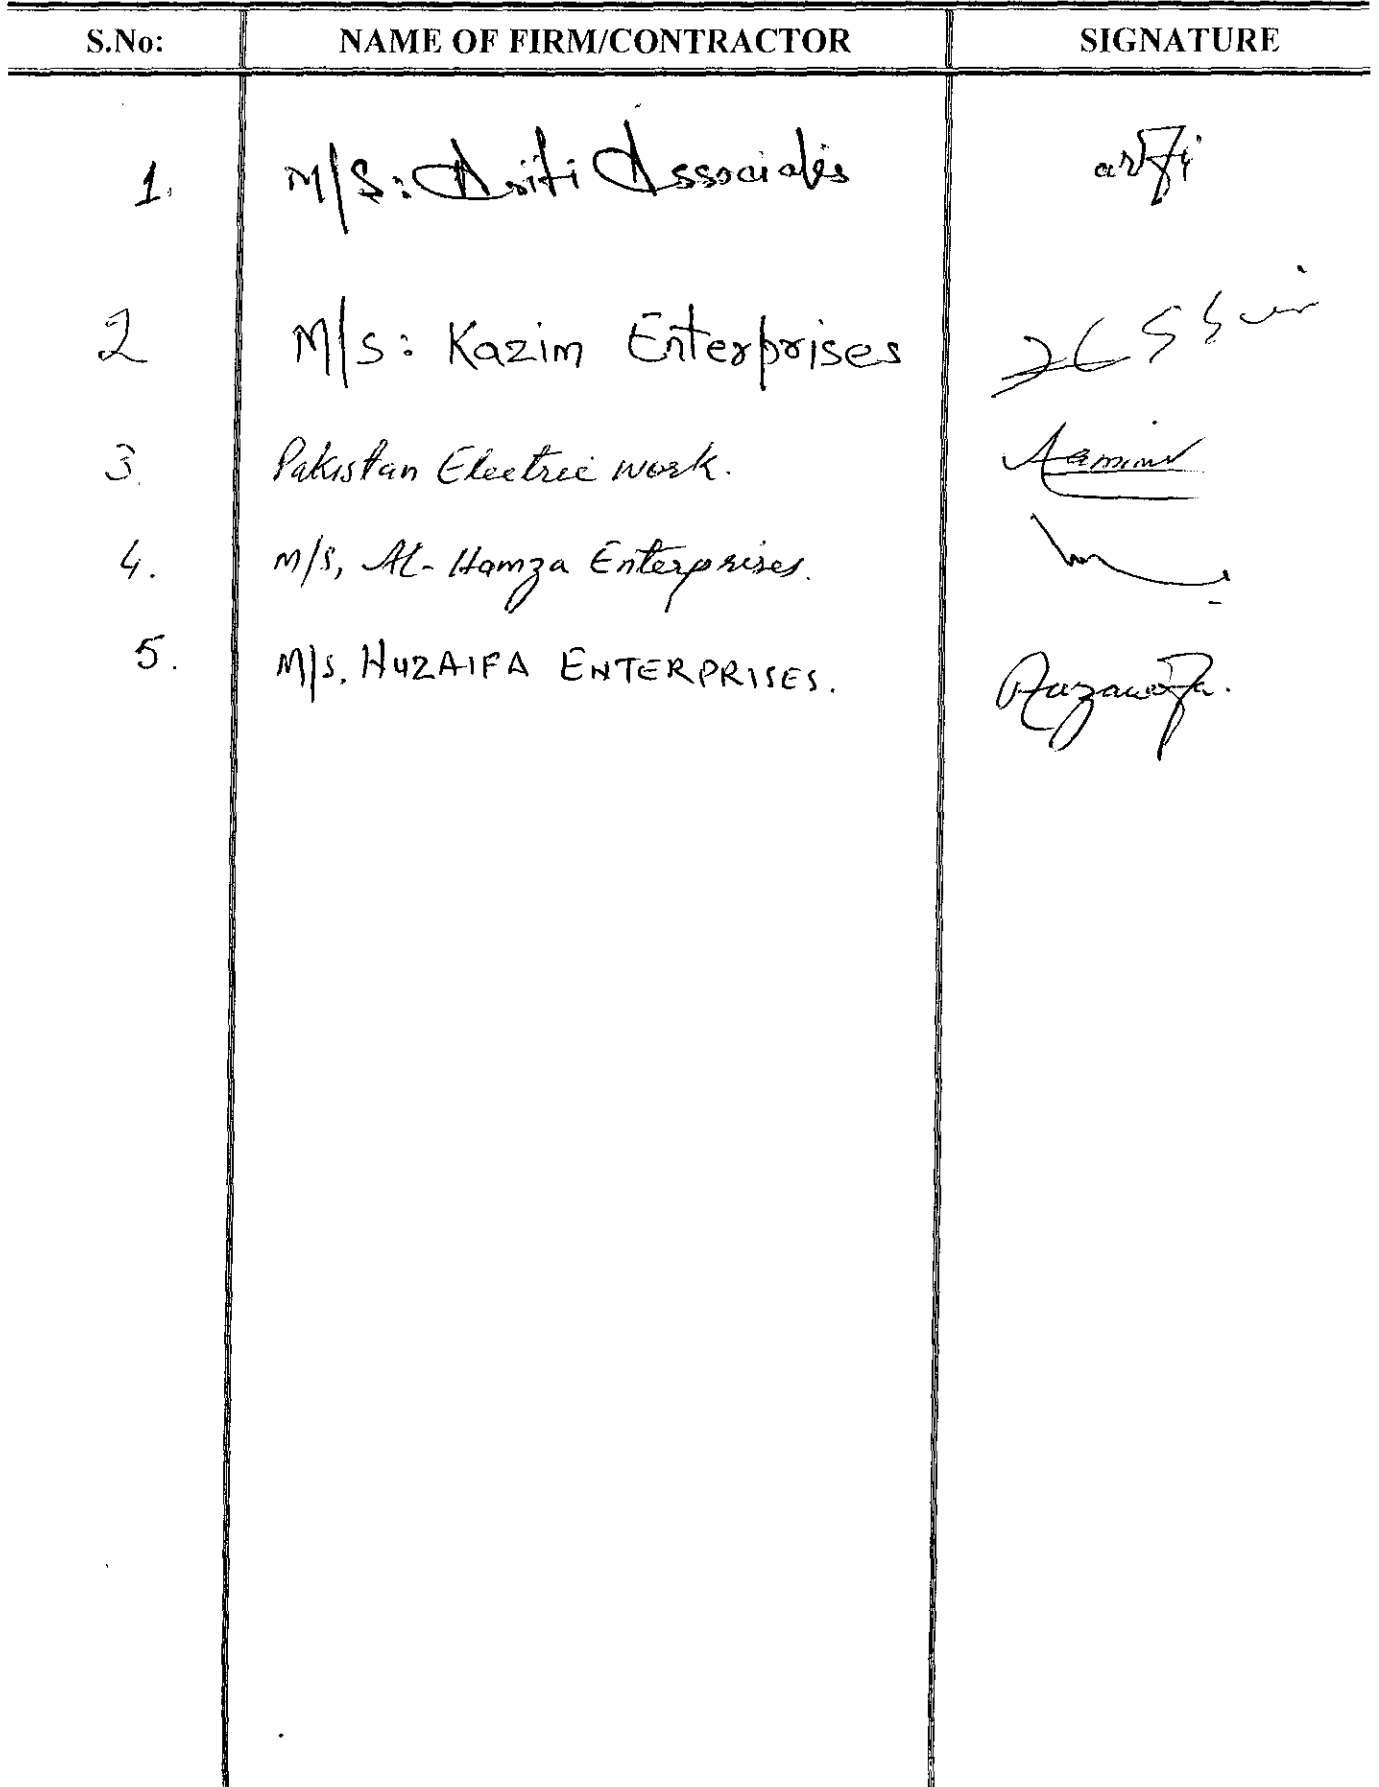 S.No: NAME OF FIRM/CONTRACTOR SIGNATURE
1. M/S: Associates
2 M/S: Kazim Enterprises
3. Pakistan Electric work.
4. M/s, Al-Hamza Enterprises.
5. M/s. HUZAIFA ENTERPRISES.